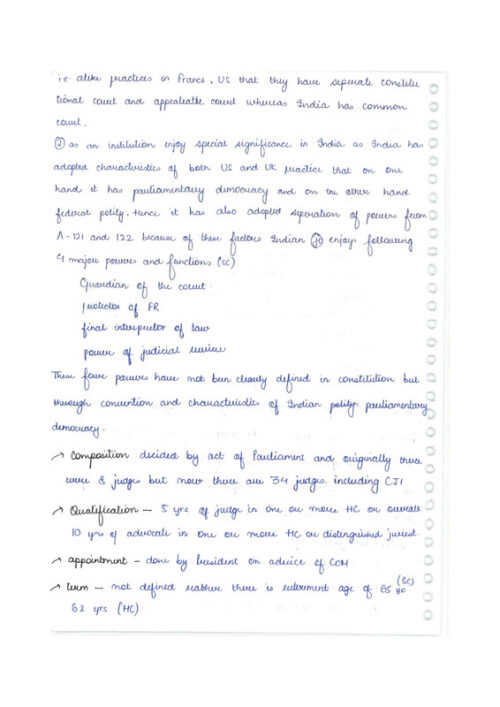 i.e. alike practices in France, US that they have seperate constitu
tional court and appealeatle court whereas India has common
court.
Ⓙ as an institution enjoy special significance in India as India has
adopted characteristics of both US and UK practice that on one
hand it has pauliamentary democracy and on the other hand
federal polity. Hence it has also adopted seperation of powers from
A-121 and 122 because of these factors Indian Ⓙ enjoys following
4 major powers and functions (SC)
Guardian of the court
protector of FR
final interpretor of law
power of judicial review
These four powers have not been clearly defined in constitution but
through convention and characteristics of Indian polity pauliamentary
democracy.
→ Composition decided by act of Pauliament and originally there
were 8 judges but now there are 34 judges. including CJI
→ Qualification – 5 yrs of judge in one or more HC or overale
10 yrs of advocate in one or more HC or distinguished jurist
→ appointment – done by President on advice of COM
→ term – not defined rather there is retirement age of 65 yo (SC)
62 yrs (HC)